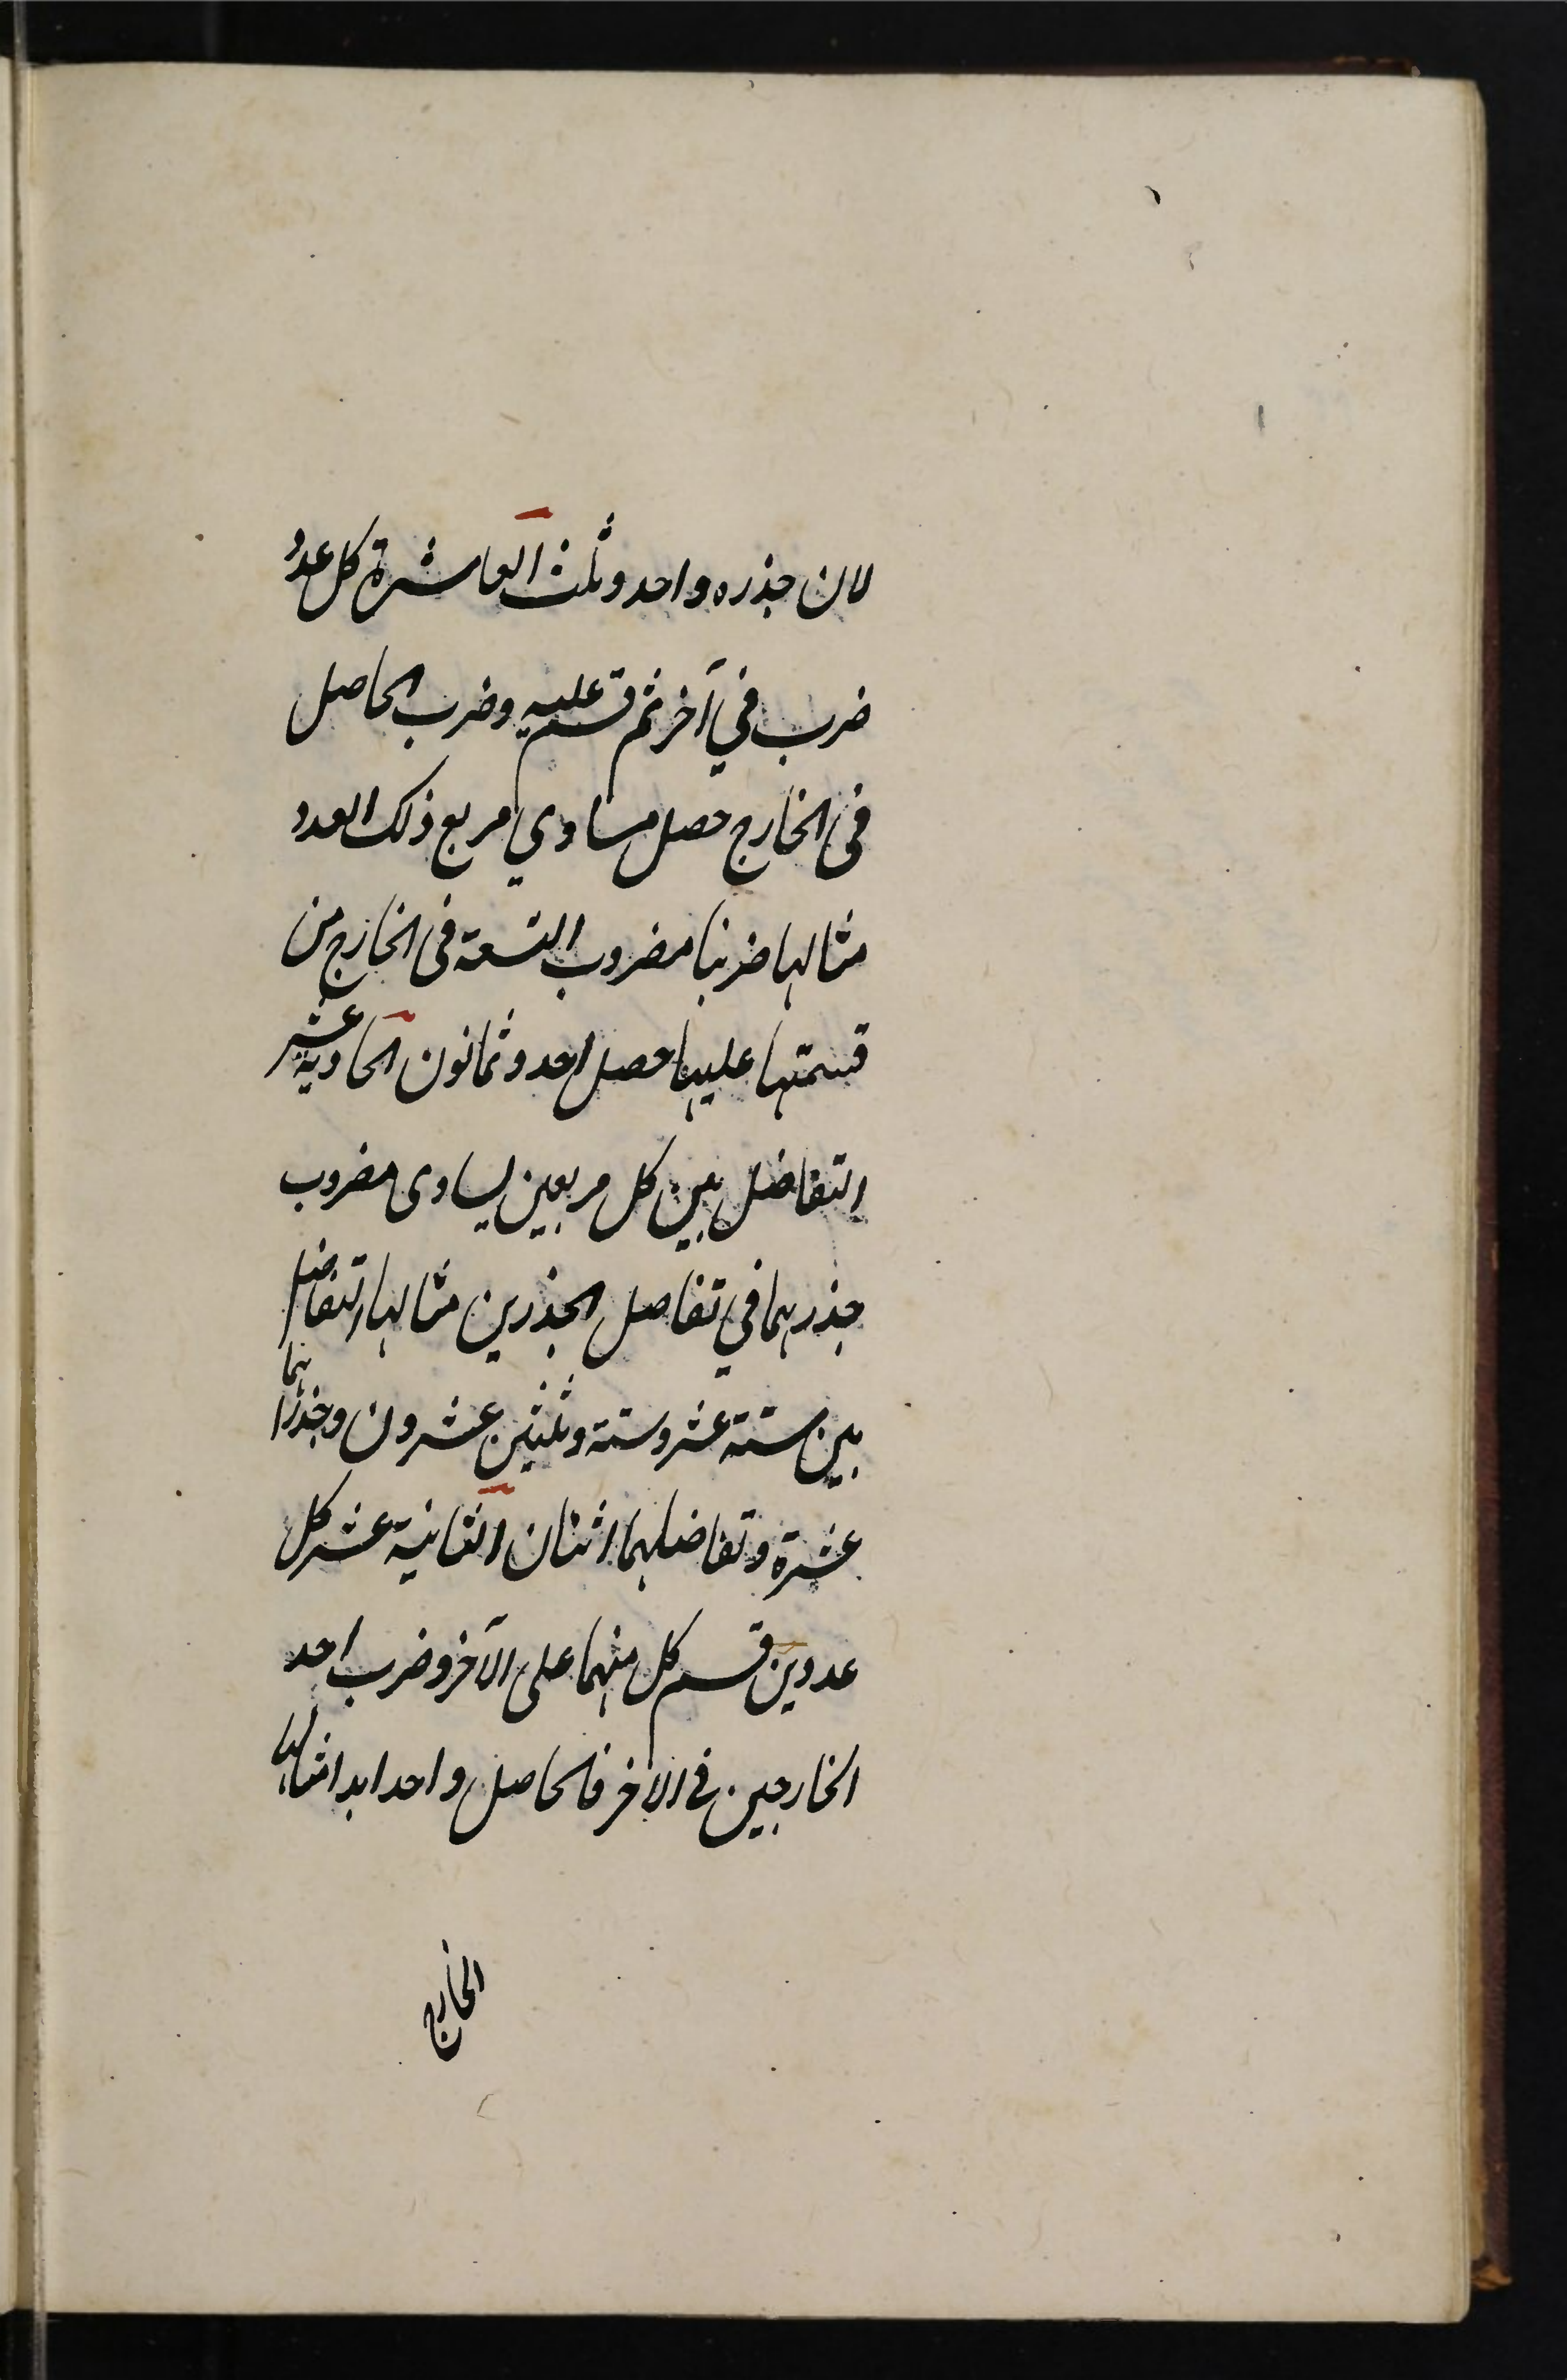 لان جذره واحد وثلث العاشرة كل عدد
ضرب في آخر ثم قسم عليه وضرب الحاصل
فى الخارج حصل مساوي مربع ذلك العدد
مثالها ضربنا مضروب التسعة فى الخارج من
قسمتها عليها حصل احد وثمانون الحادية عشر
التفاضل بين كل مربعين يساوى مضروب
جذريهما في تفاصل الجذرين مثالها التفاضل
بين ستة عشر وستة وثلثين عشرون وجذراهما
عشرة وتفاضلهما اثنان الثانية عشر كل
عددين قسم كل منهما على الآخر وضرب احد
الخارجين فى الاخر فالحاصل واحد ابدا مثالها
الخارج